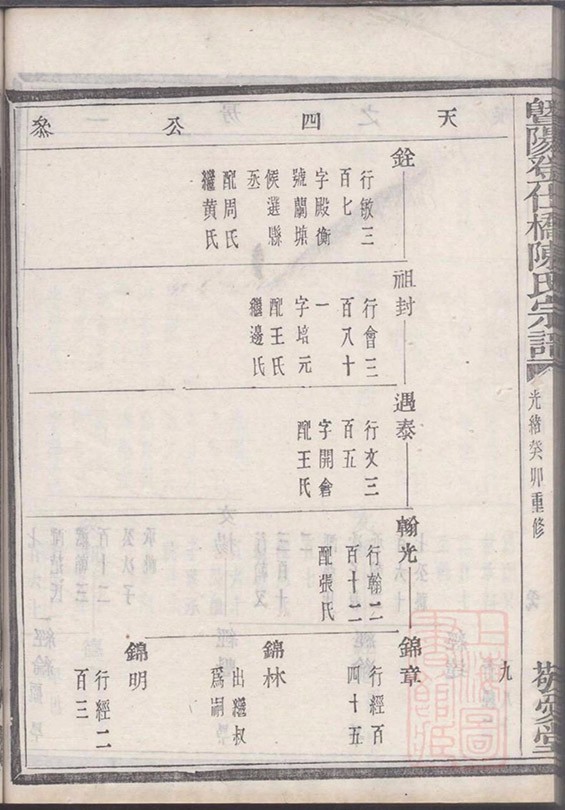 暨陽登仕橋陳氏宗譜
光緒癸卯重修
九
敬愛堂
天四公系
銓
行敏三
百七
字殿衡
號蘭塘
候選縣
丞
配周氏
繼黄氏
祖封
行會三
百八十
一
字培元
配王氏
繼邊氏
遇泰
行文三
百五
字開會
配王氏
翰光
行翰二
百十二
配張氏
錦章
行經百
四十五
錦林
出繼叔
爲嗣
錦明
行經二
百三